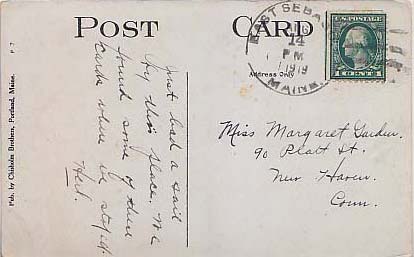 POST CARD
P-7
Pub. by Chisholm Brothers, Portland, Maine.
Just had a sail
by this place. We
found some of these
cards where we stopped.
Herb.
EAST SEBA
14
PM
1919
MAINE.
Address Only
U.S. POSTAGE
1 CENT 1
Miss Margaret
90 Platt St.
New Haven.
Conn.